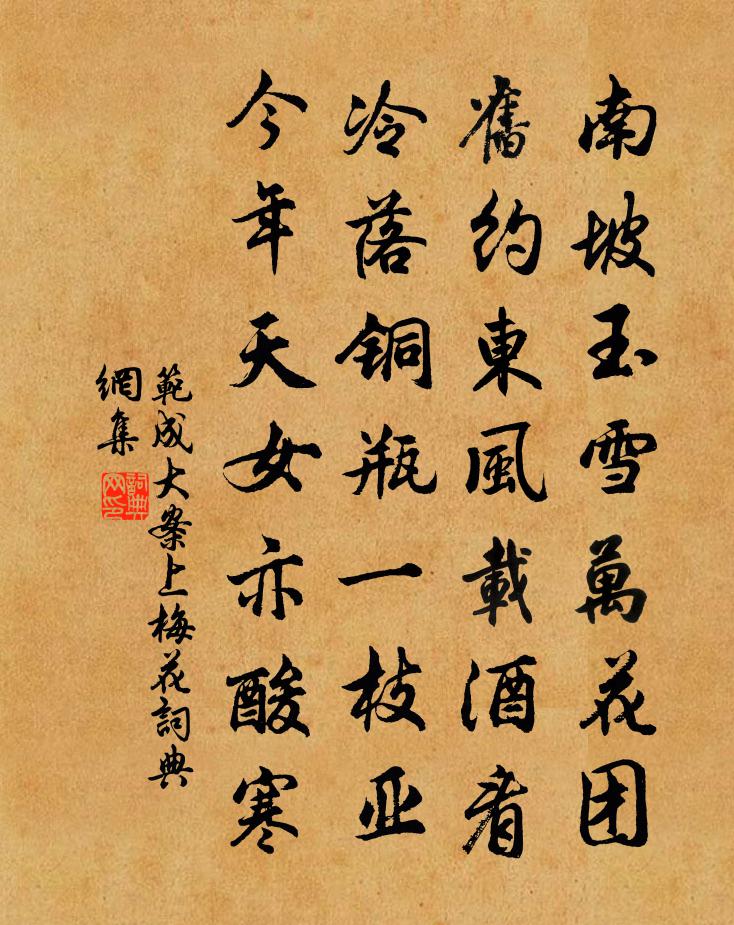 南坡玉雪萬花团
舊約東風載酒看
冷落銅瓶一枝亚
今年天女亦酸寒
範成大案上梅花詞典
網集
詞典
网印